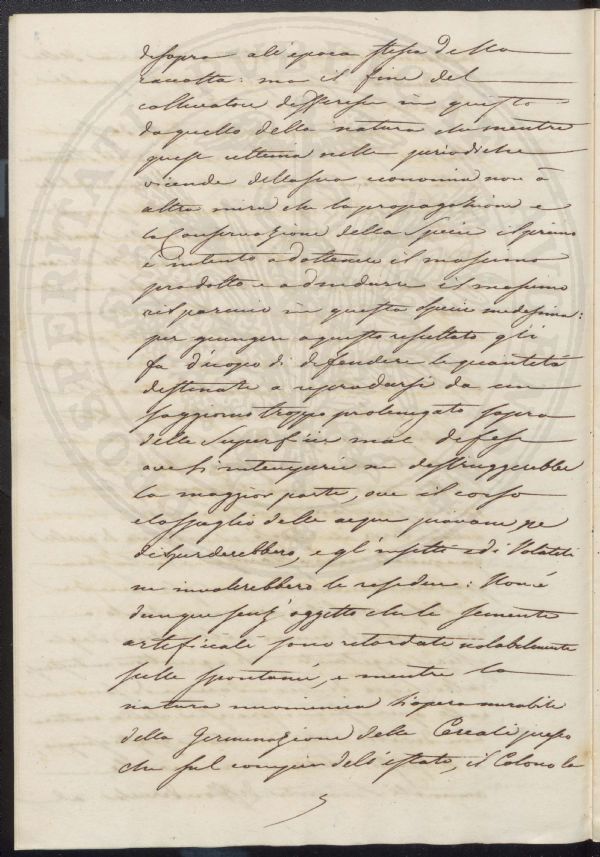 disopra all'epoca stessa della
raccolta: ma il fine del
coltivatore differisce in questo
da quello della natura che mentre
quest ultima nelle periodiche
vicende della sua economia non à
altra mira che la propagazione e
la Conservazione della Specie il primo
è intento ad ottenere il massimo
prodotto e ad indurre il massimo
risparmio in questa specie medesima:
per giungere a questo resultato gli
fa d'uopo di difendere le quantità
destinate a riprodursi da un
soggiorno troppo prolungato sopra
delle Superficie mal difese
ove l'intemperie ne distruggerebbe
la maggior parte, ove il corso
e lo scaglio delle acque piovane ne
disperderebbero, e gl'insetti ed i Volatili
ne involerebbero le residue: Non è
dunque senz' oggetto che le semente
artificiali sono retardate notabilmente
sulle spontanee, e mentre la
natura incomincia l'opera mirabile
della Germinazione delle Cereali presso
che sul compier dell'estate, il Colono la
5
PROSPERITATI